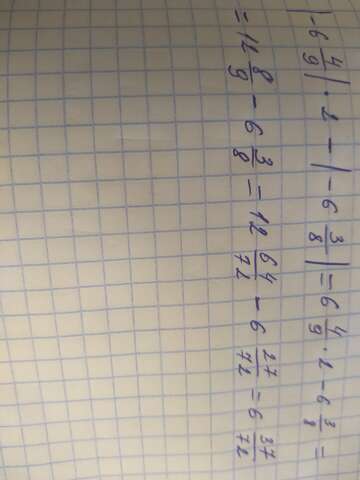 |-6 4/9| · 2 - |-6 3/8| = 6 4/9 · 2 - 6 3/8 =
= 12 8/9 - 6 3/8 = 12 64/72 - 6 27/72 = 6 37/72